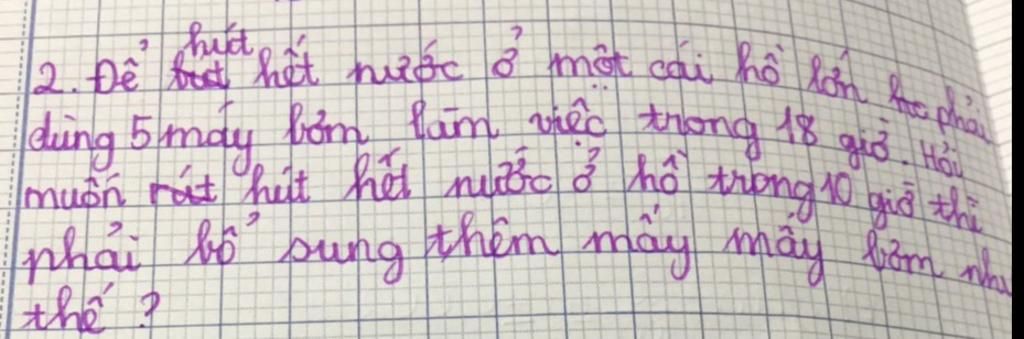 2. Để hút hết nước ở một cái hồ lớn phải
dùng 5 máy bơm làm việc trong 18 giờ. Hỏi
muốn rút hút hết nước ở hồ trong 10 giờ thì
phải bổ sung thêm mấy máy bơm như
thế ?